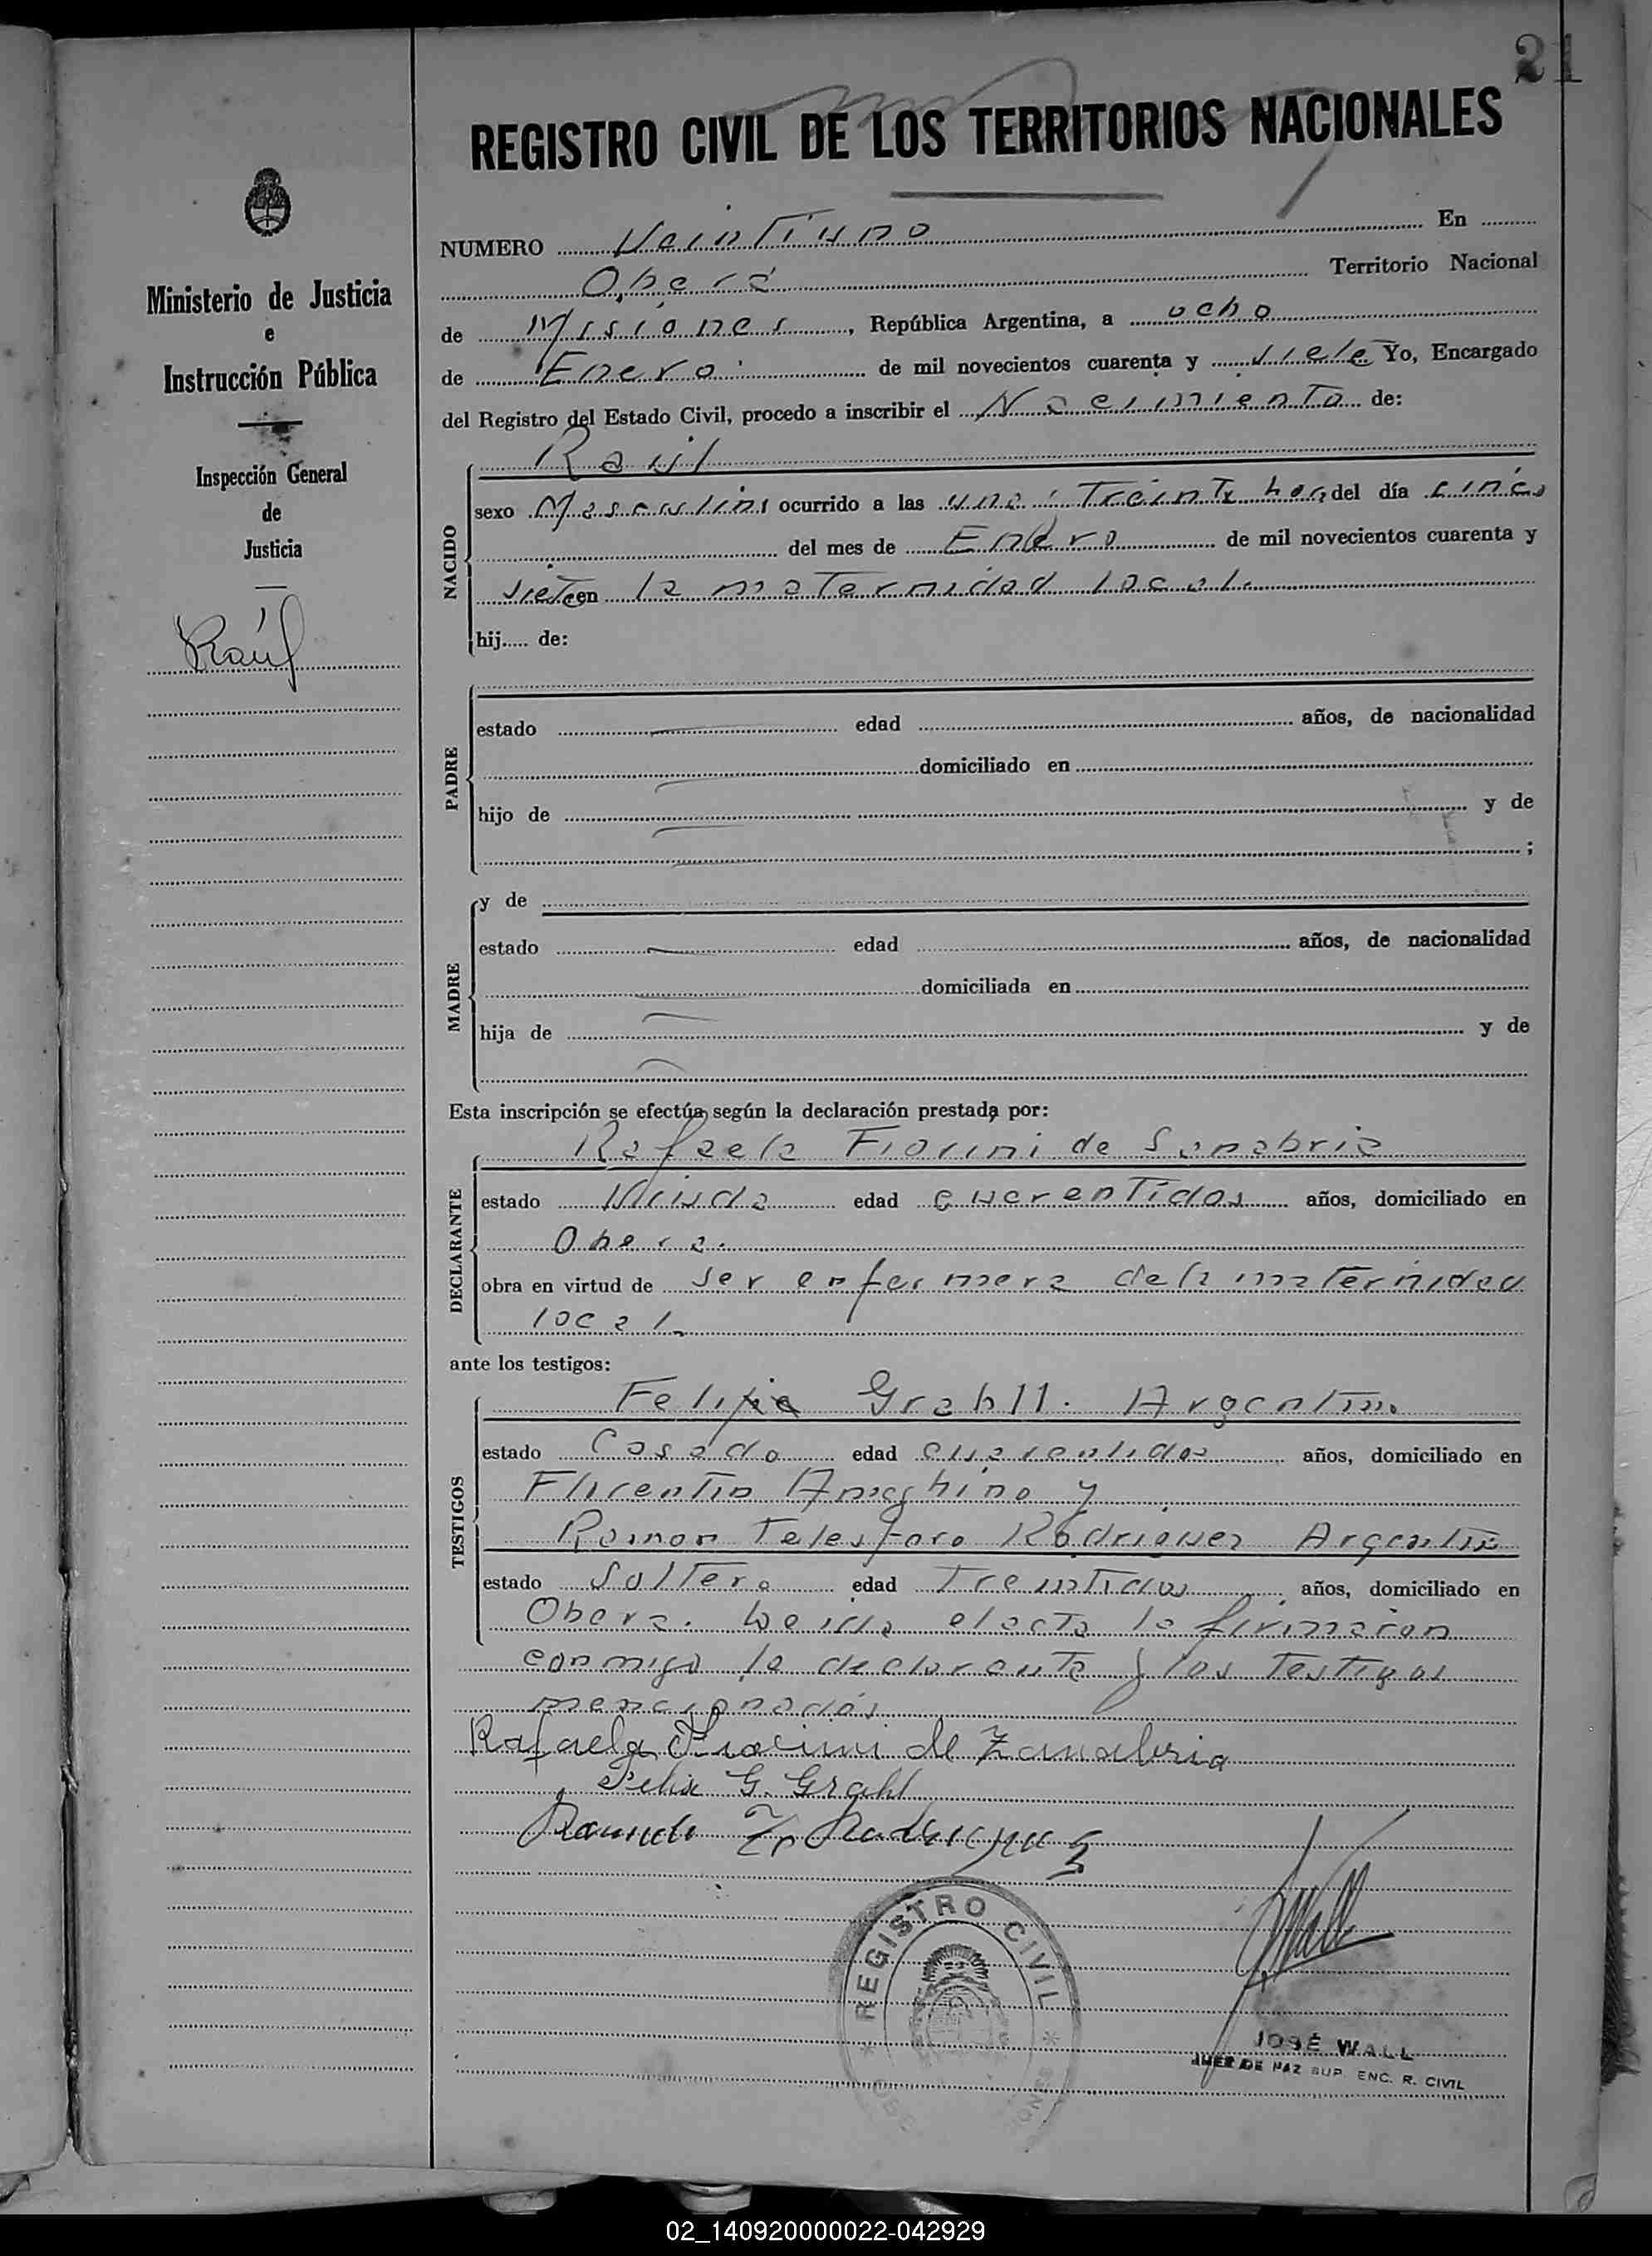 21
REGISTRO CIVIL DE LOS TERRITORIOS NACIONALES
NUMERO Veintiuno En
Oberá Territorio Nacional
de Misiones, República Argentina, a ocho
de Enero de mil novecientos cuarenta y siete Yo, Encargado
del Registro del Estado Civil, procedo a inscribir el Nacimiento de:
Ministerio de Justicia
e
Instrucción Pública
Inspección General
de
Justicia
Raúl
NACIDO
Raúl
sexo Masculino ocurrido a las una treinta hor del día cinco
del mes de Enero de mil novecientos cuarenta y
siete en la maternidad local.
hij..... de:
PADRE
estado edad años, de nacionalidad
domiciliado en
hijo de y de
;
MADRE
y de
estado edad años, de nacionalidad
domiciliada en
hija de y de
Esta inscripción se efectúa según la declaración prestada por:
DECLARANTE
Rafaela Fiorini de Sanabria
estado Viuda edad cuarentidos años, domiciliado en
Obera.
obra en virtud de ser enfermera de la maternidad
local.
ante los testigos:
TESTIGOS
Grahll. Argentino
estado Casado edad cuarentidos años, domiciliado en
Florentin Ameghino y
Ramon Telesforo Rodriguez Argentin
estado Soltero edad Treintidos años, domiciliado en
Obera. Leida el acta la firmaron
conmigo la declarante y los testigos
mencionados
Rafaela Fiorini de Zanabria
Felix G. Grahl
Ramon T. Rodriguez
REGISTRO CIVIL
JOSÉ WALL
JUEZ DE PAZ SUP. ENC. R. CIVIL
02_140920000022-042929